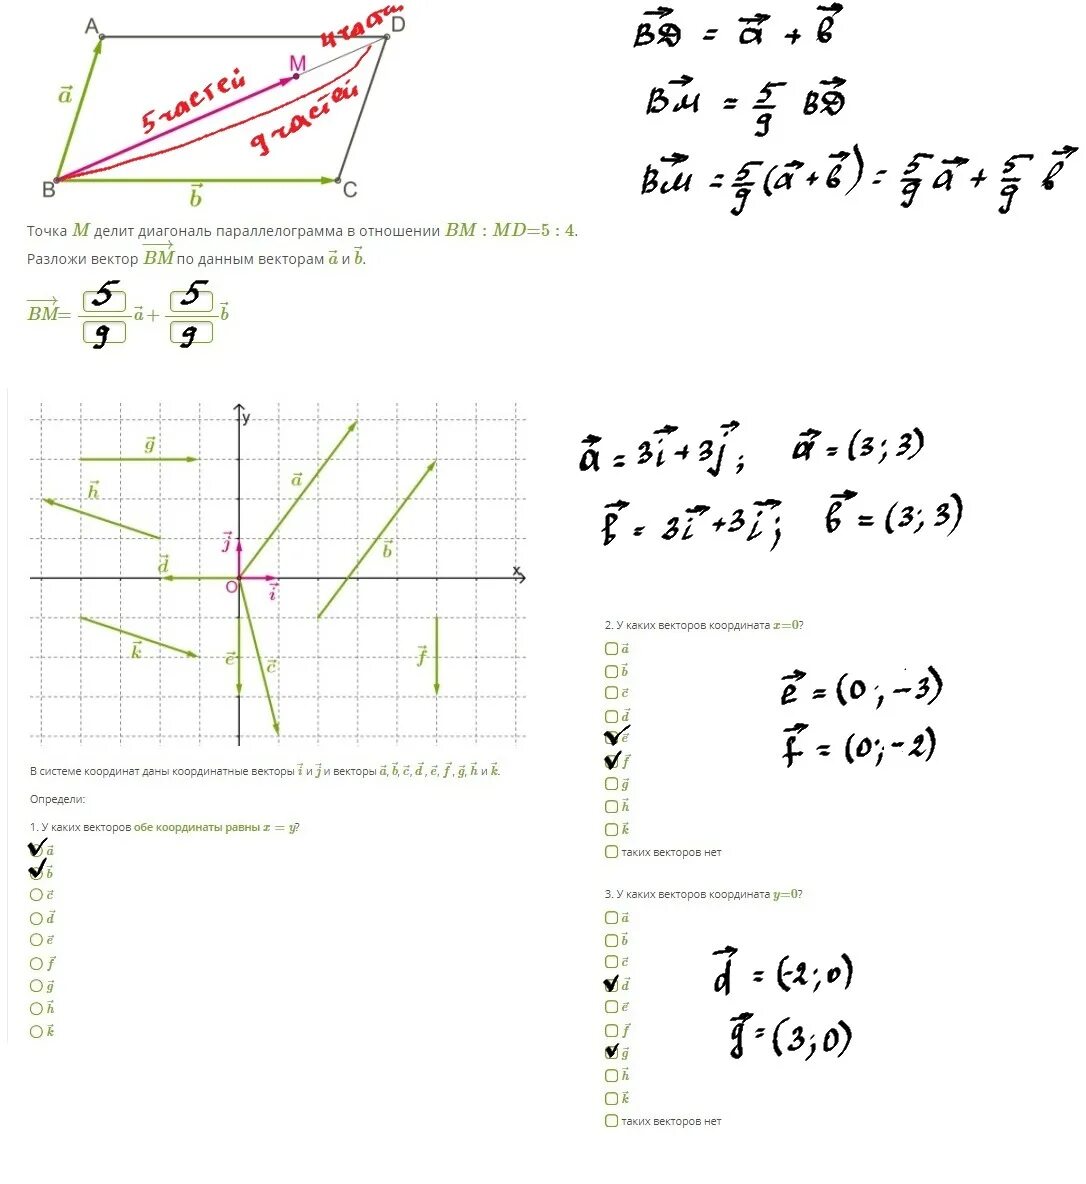 A
D
4 части
M
5 частей
9 частей
a⃗
B
b⃗
C
BD⃗ = a⃗ + b⃗
BM⃗ = 5/9 BD⃗
BM⃗ = 5/9(a⃗+b⃗) = 5/9 a⃗ + 5/9 b⃗
Точка M делит диагональ параллелограмма в отношении BM : MD=5 : 4.
Разложи вектор BM⃗ по данным векторам a⃗ и b⃗.
BM⃗= 5/9 a⃗+ 5/9 b⃗
y
g⃗
a⃗
h⃗
b⃗
j⃗
d⃗
x
O
i⃗
k⃗
e⃗
c⃗
f⃗
a⃗ = 3i⃗ + 3j⃗; a⃗ = (3; 3)
b⃗ = 3i⃗ + 3i⃗; b⃗ = (3; 3)
В системе координат даны координатные векторы i⃗ и j⃗ и векторы a⃗, b⃗, c⃗, d⃗, e⃗, f⃗, g⃗, h⃗ и k⃗.
Определи:
1. У каких векторов обе координаты равны x = y?
a⃗
b⃗
c⃗
d⃗
e⃗
f⃗
g⃗
h⃗
k⃗
2. У каких векторов координата x=0?
a⃗
b⃗
c⃗
d⃗
e⃗
f⃗
g⃗
h⃗
k⃗
таких векторов нет
e⃗ = (0; -3)
f⃗ = (0; -2)
3. У каких векторов координата y=0?
a⃗
b⃗
c⃗
d⃗
e⃗
f⃗
g⃗
h⃗
k⃗
таких векторов нет
d⃗ = (-2; 0)
g⃗ = (3; 0)